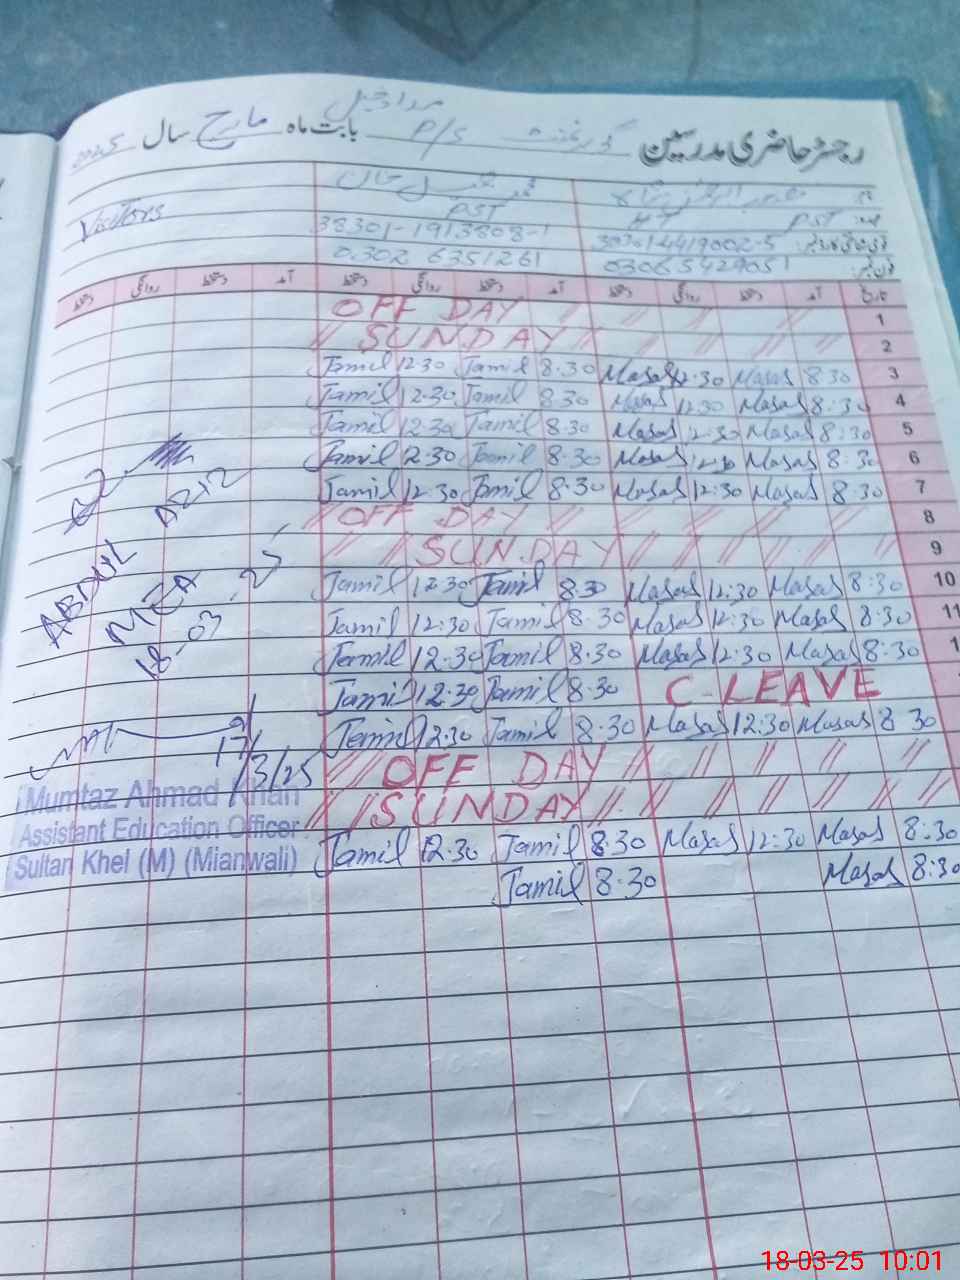 رجسٹر حاضری مدرسین گورنمنٹ P/S مداخیل بابت ماہ مارچ سال 2025
Visitors
PST PST
38301-1913808-1
0302 6351261 03065429051
تاریخ آمد دستخط روانگی دستخط آمد دستخط روانگی دستخط آمد دستخط روانگی دستخط
OFF DAY 1
SUNDAY 2
Jamil 12.30 Jamil 8.30 Masas 12.30 Masas 8:30 3
Jamil 12.30 Jamil 8.30 Masas 12:30 Masas 8:30 4
Jamil 12.30 Jamil 8.30 Masas 12:30 Masas 8:30 5
Jamil 2.30 Jamil 8.30 Masas 12:30 Masas 8:30 6
Jamil 12.30 Jamil 8.30 Masas 12:30 Masas 8:30 7
OFF DAY 8
SUNDAY 9
Jamil 12.30 Jamil 8.30 Masas 12:30 Masas 8:30 10
Jamil 12.30 Jamil 8.30 Masas 12:30 Masas 8:30 11
Jamil 12.30 Jamil 8.30 Masas 12:30 Masas 8:30 1
Jamil 12.30 Jamil 8.30 C-LEAVE
Jamil 12.30 Jamil 8.30 Masas 12:30 Masas 8:30
OFF DAY
SUNDAY
Jamil 12.30 Jamil 8.30 Masas 12:30 Masas 8:30
Jamil 8.30 Masas 8:30
ABDUL AZIZ
MEA
18-03-25
17/3/25
Mumtaz Ahmad Khan
Assistant Education Officer
Sultan Khel (M) (Mianwali)
18-03-25 10:01